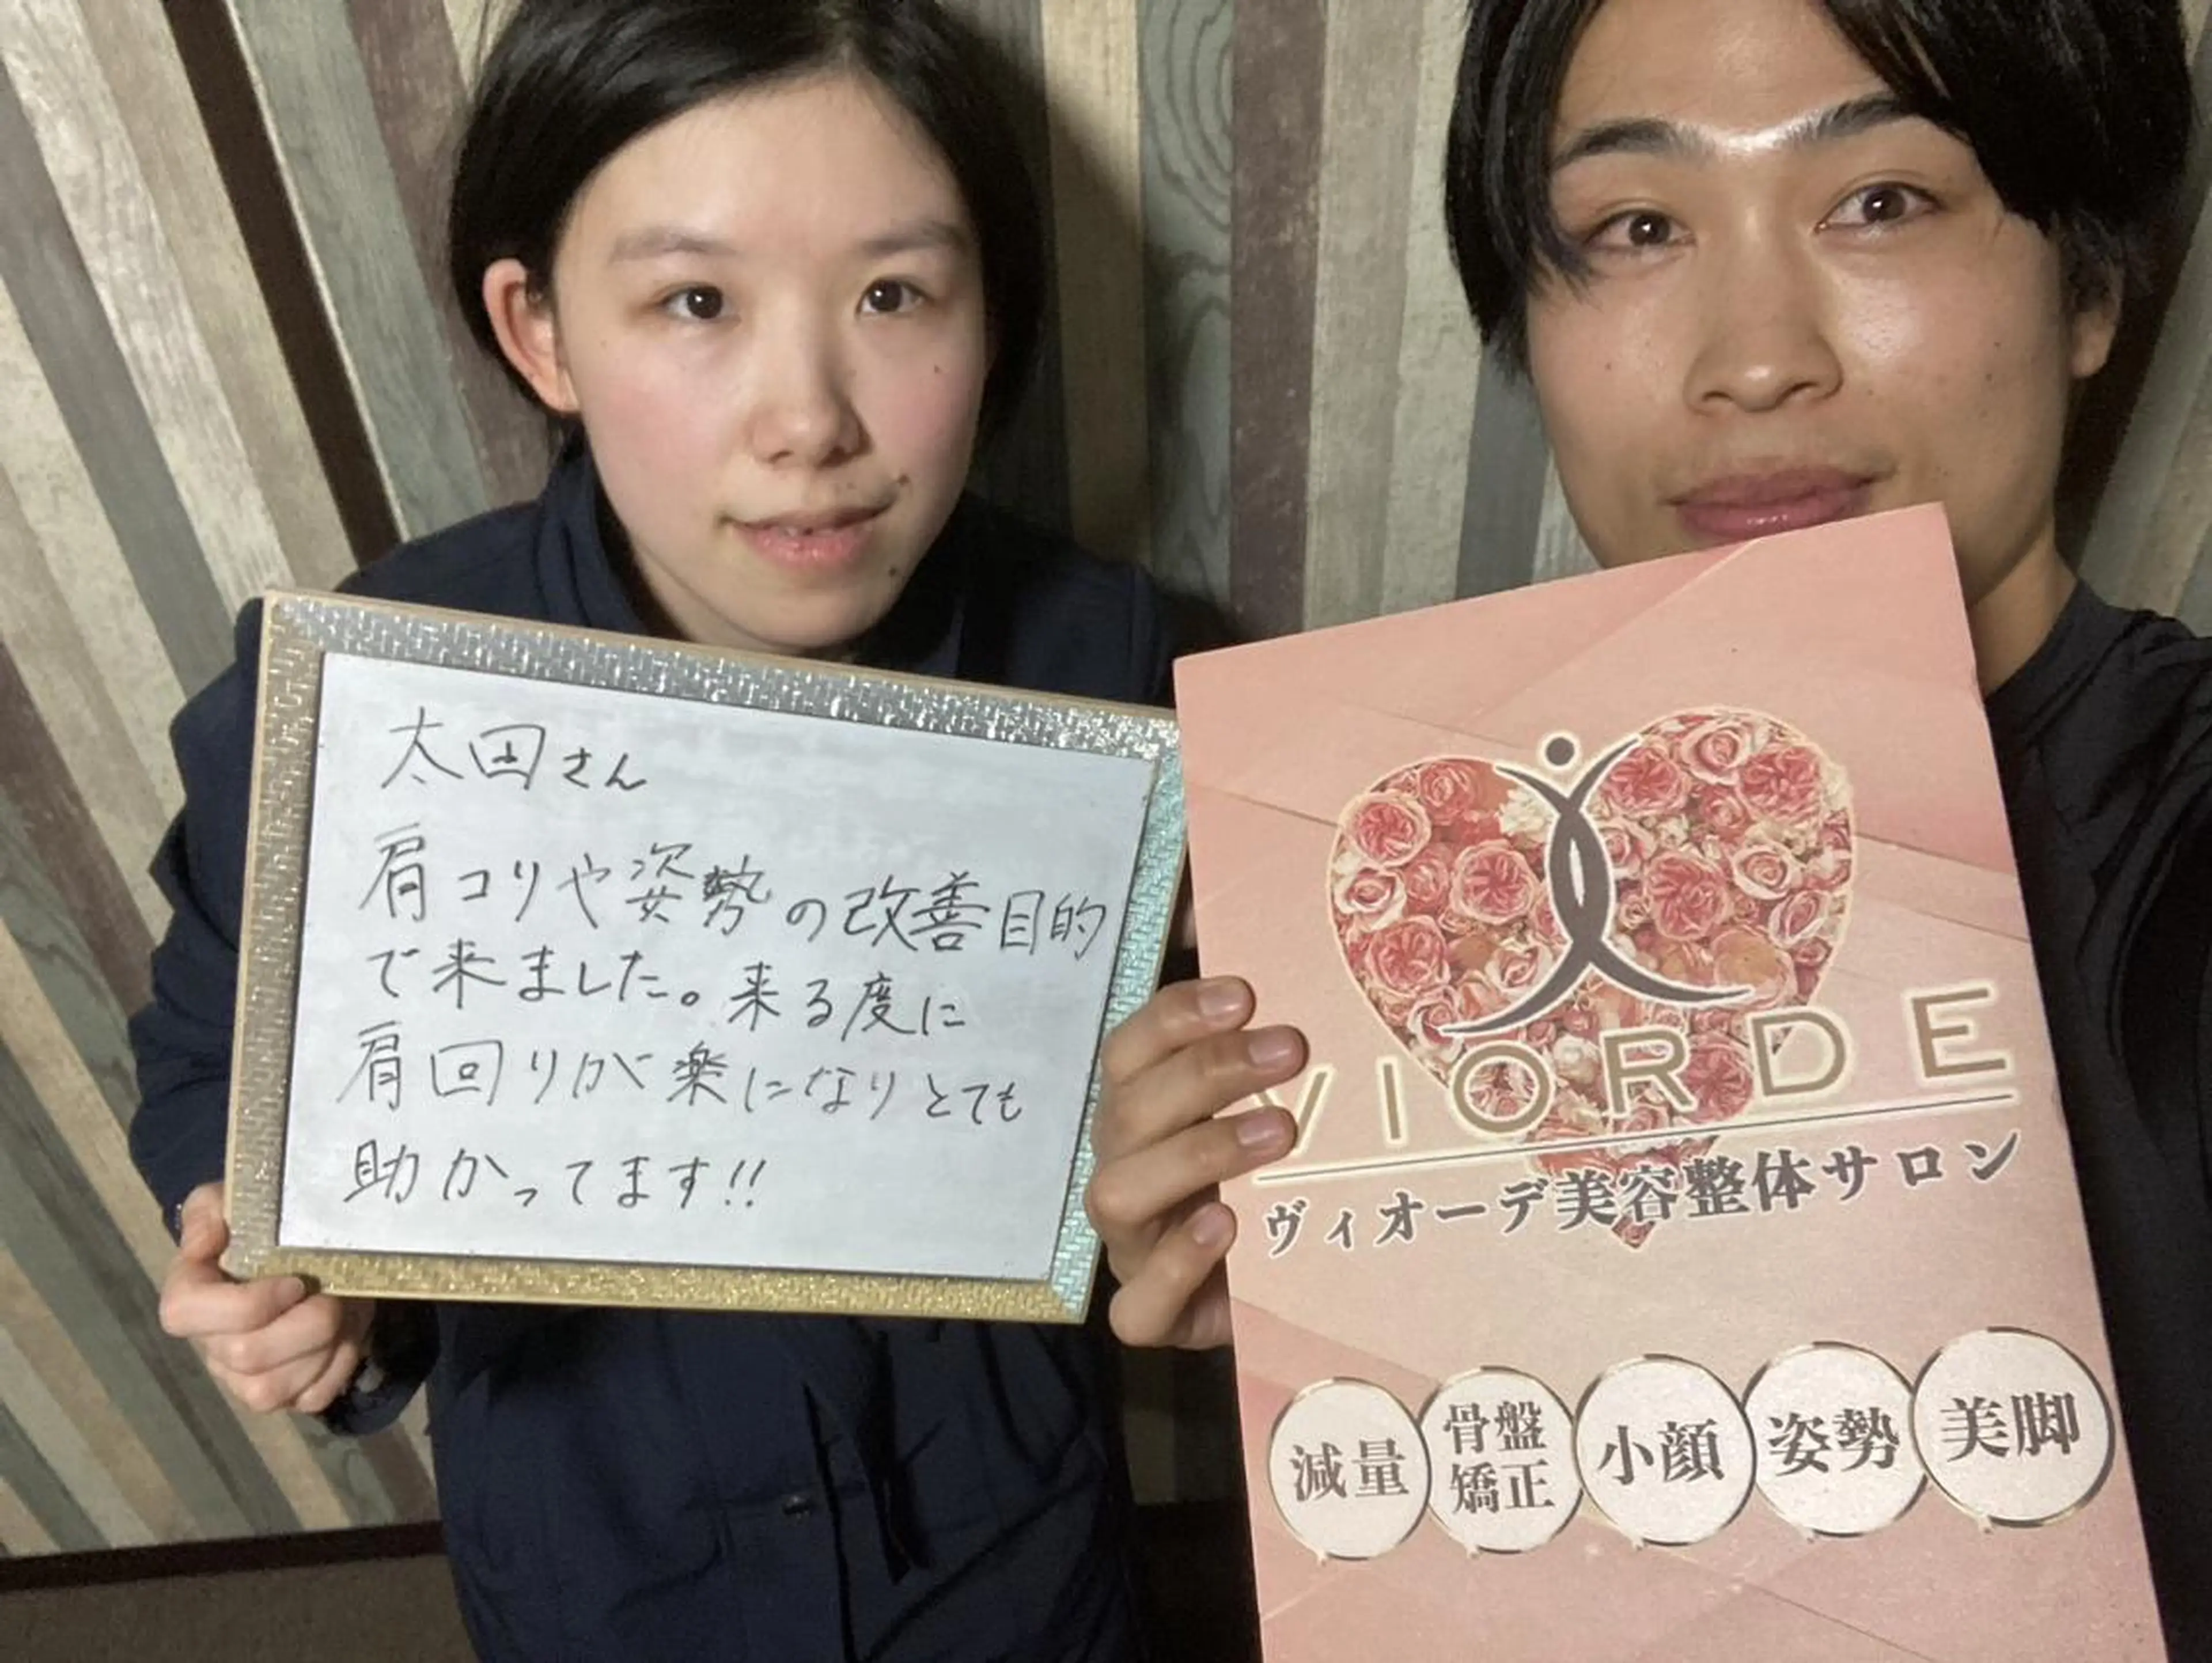 太田さん
肩コリや姿勢の改善目的
で来ました。来る度に
肩回りが楽になりとても
助かってます!!
VIORDE
ヴィオーデ美容整体サロン
減量
骨盤
矯正
小顔
姿勢
美脚